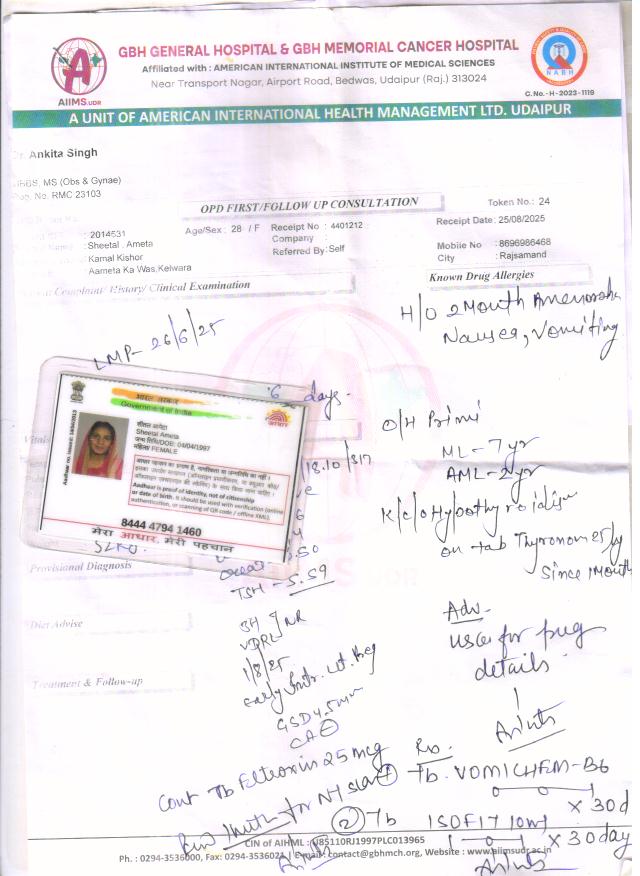 GBH GENERAL HOSPITAL & GBH MEMORIAL CANCER HOSPITAL
Affiliated with : AMERICAN INTERNATIONAL INSTITUTE OF MEDICAL SCIENCES
Near Transport Nagar, Airport Road, Bedwas, Udaipur (Raj.) 313024
AIIMS.UDR
NABH
C. No.- H - 2023 - 1119
A UNIT OF AMERICAN INTERNATIONAL HEALTH MANAGEMENT LTD. UDAIPUR
Ankita Singh
MS (Obs & Gynae)
No. RMC 23103
OPD FIRST/FOLLOW UP CONSULTATION
Token No.: 24
: 2014531
Age/Sex : 28 / F
Receipt No : 4401212
Receipt Date : 25/08/2025
: Sheetal . Ameta
Company :
Kamal Kishor
Referred By : Self
Mobile No : 8696986468
Aameta Ka Was, Kelwara
City : Rajsamand
Complaint/ History/ Clinical Examination
Known Drug Allergies
LMP- 26/6/25
H/O 2 Month
Nausea, Vomiting
6 days.
भारत सरकार
Government of India
शीतल आमेटा
Sheetal Ameta
जन्म तिथि/DOB: 04/04/1997
महिला/ FEMALE
Aadhaar is proof of identity, not of citizenship
or date of birth. It should be used with verification (online
authentication, or scanning of QR code / offline XML).
8444 4794 1460
मेरा आधार, मेरी पहचान
O/H Primi
ML - 7 yr
AML - 2 yr
K/c/o Hypothyroidism
on tab Thyronorm 25
Since 1 Month
Provisional Diagnosis
TSH - 5.59
Diet Advise
VDRL
NR
1/8/25
Adv.
USG for preg
details
Treatment & Follow-up
early Intr. ut. Preg
GSD 4.5mm
CA
Cont Tb Eltroxin 25 mcg
Rx.
Tb. VOMICHEM-B6
x 30d
for NT scan
② Tb
x 30 day
CIN of AIHML : U85110RJ1997PLC013965
Ph. : 0294-3536000, Fax: 0294-3536021 E-mail: contact@gbhmch.org, Website : www.aiimsudr.ac.in